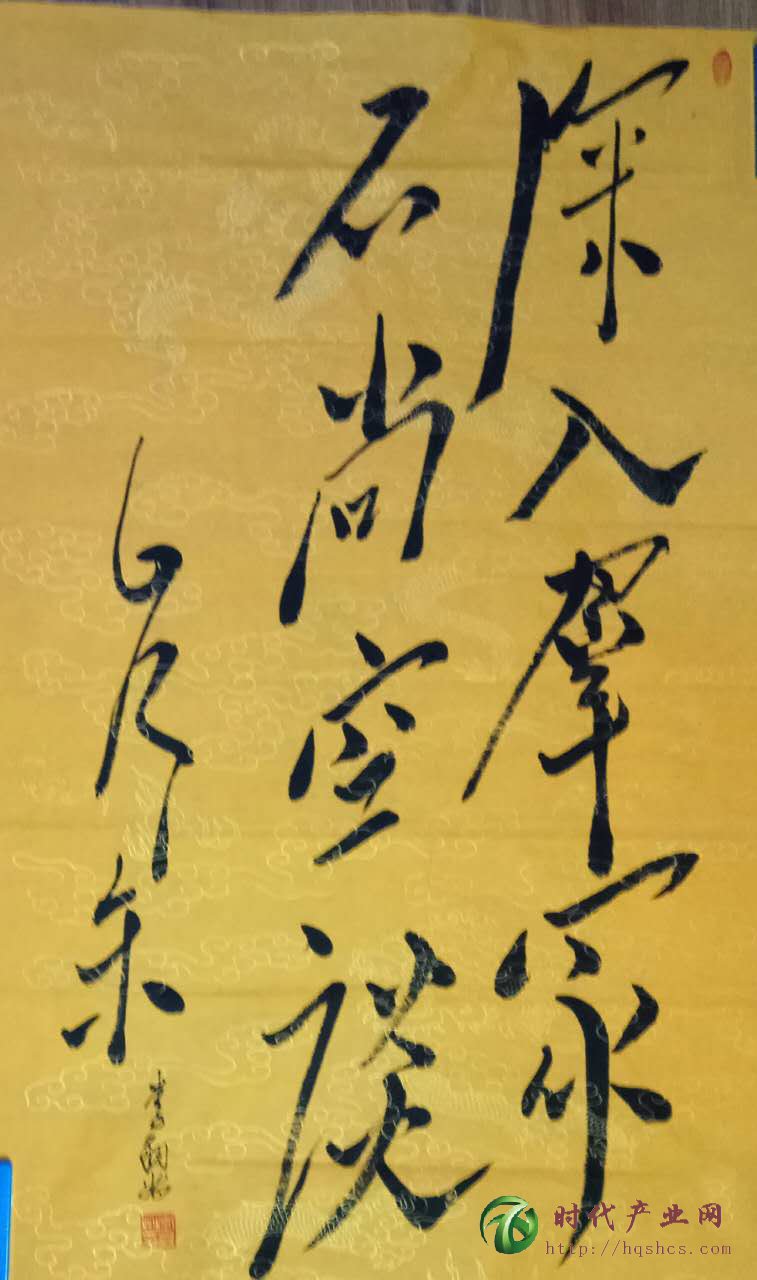 深入群众
不尚空谈
毛泽东
时代产业网
http://hqshcs.com